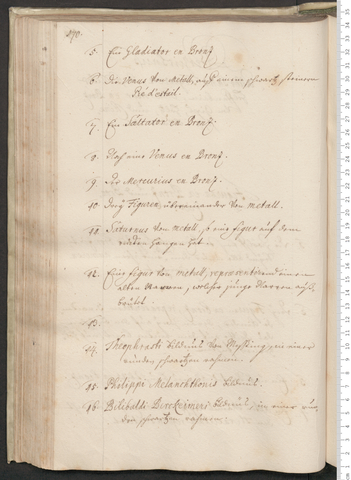 5. Ein Gladiator en Bronz.
6. Die Venus von Metall, auf einem schwartz steinern
Piedestall.
7. Ein Saltator en Bronz.
8. Noch eine Venus en Bronz.
9. Der Mercurius en Bronz.
10. Figuren, übereinander von metall.
11. Saturnus von metall, so eine figur auf dem
hangen hat.
12. Eine figur von metall, representirend einen
alten Narren, welcher junge Narren auß-
brütet
13.
14. Theophrasti bildnus von Meßing, in einer
runden schwartzen rahmen.
15. Philippi Melanchthonis bildnus.
16. Bilibaldi Birckeimeri bildnus, in einer run-
den schwartzen rahmen